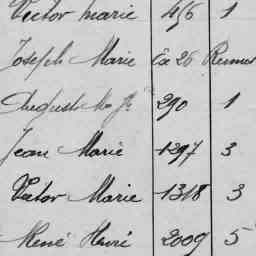 Victor Marie 456 1
Joseph Marie Ex 26 Rumes
Auguste M. Jh 290 1
Jean Marie 1297 3
Victor Marie 1318 3
René Henri 2009 5